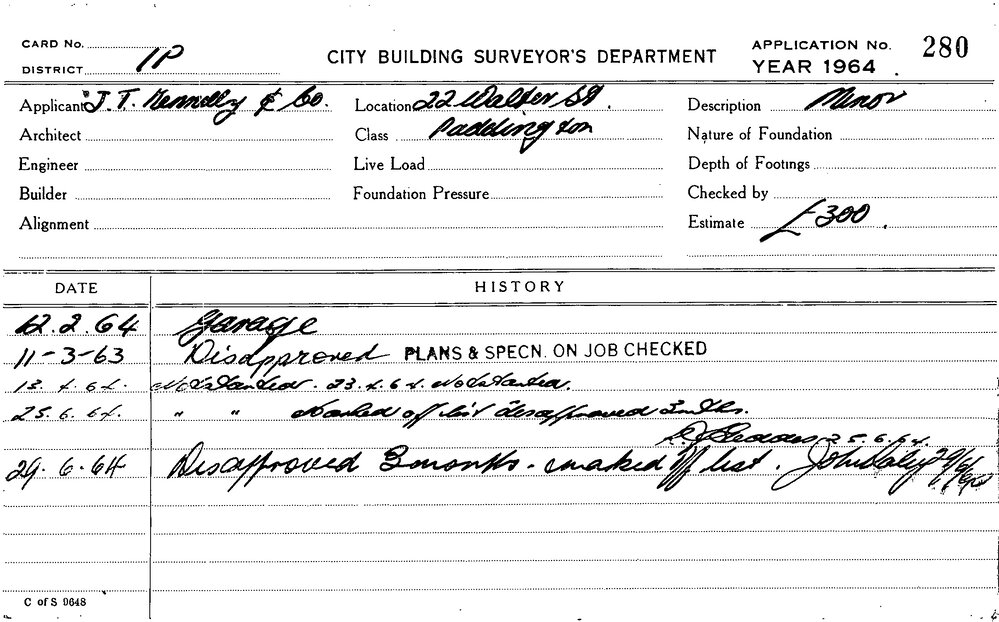 CARD No.
DISTRICT 1P
CITY BUILDING SURVEYOR'S DEPARTMENT
APPLICATION No. 280
YEAR 1964
Applicant J. T. Kennelly & Co. Location 22 Walter St. Description Minor
Architect Class Paddington Nature of Foundation
Engineer Live Load Depth of Footings
Builder Foundation Pressure Checked by
Alignment Estimate £300.
DATE HISTORY
12.2.64 Garage
11-3-63 Disapproved PLANS & SPECN. ON JOB CHECKED
13.4.64. Not Started. 23.4.64. Not Started.
25.6.64. " " Marked off list disapproved 3 mths.
25.6.64.
29.6.64 Disapproved 3 months - marked off list. John Daly 29/6/64
C of S 9648